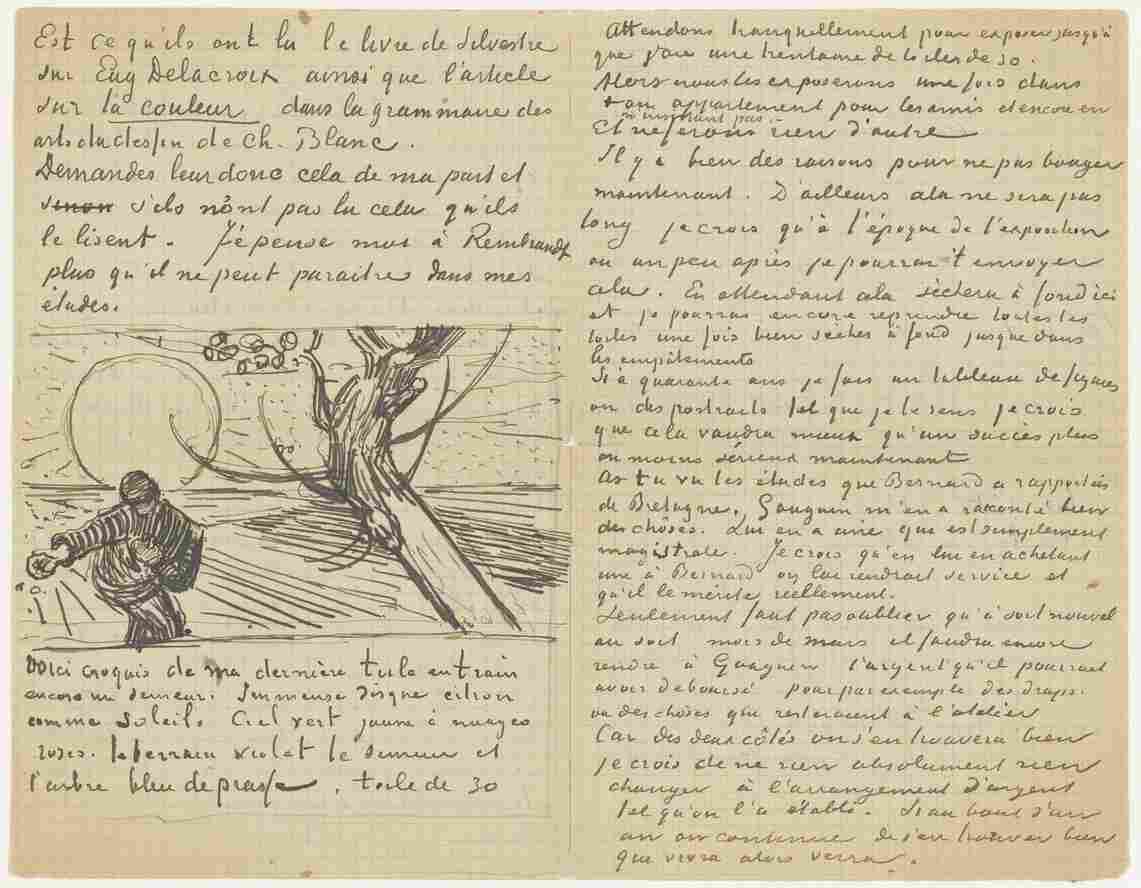 Est ce qu'ils ont lu le livre de Silvestre
sur Eug Delacroix ainsi que l'article
sur la couleur dans la grammaire des
arts du dessin de Ch. Blanc.
Demandes leur donc cela de ma part et
sinon s'ils n'ont pas lu cela qu'ils
le lisent. J'épense moi à Rembrandt
plus qu'il ne peut paraitre dans mes
études.
Voici croquis de ma dernière toile en train
encore un semeur. Immense disque citron
comme soleil. Ciel vert jaune à nuages
roses. le terrain violet le semeur et
l'arbre bleu de prusse. toile de 30
Attendons tranquillement pour exposer jusqu'à
que j'aie une trentaine de toiles de 30.
Alors nous les exposerons une fois dans
ton appartement pour les amis et encore en
n'insistant pas.
Et ne ferons rien d'autre
Il y a bien des raisons pour ne pas bouger
maintenant. D'ailleurs cela ne sera pas
long je crois qu'à l'époque de l'exposition
ou un peu après je pourrai t'envoyer
cela. En attendant cela sèchera à fond ici
et je pourrai encore reprendre toutes les
toiles une fois bien sèches à fond jusque dans
les empâtements
Si à quarante ans je fais un tableau de figures
ou des portraits tel que je le sens je crois
que cela vaudra mieux qu'un succès plus
ou moins sérieux maintenant
As tu vu les études que Bernard a rapportées
de Bretagne. Gauguin m'en a raconté bien
des choses. Lui en a une qui est simplement
magistrale. Je crois qu'en lui en achetant
une à Bernard on lui rendrait service et
qu'il le mérite réellement.
Seulement faut pas oublier qu'à soit nouvel
an soit mois de mars il faudra encore
rendre à Gauguin l'argent qu'il pourrait
avoir deboursé pour par exemple des draps.
ou des choses qui resteraient à l'atelier
Car des deux côtés on s'en trouvera bien
je crois de ne rien absolument rien
changer à l'arrangement d'argent
tel qu'on l'a établi. Si au bout d'un
an on continue de s'en trouver bien
qui vivra alors verra.